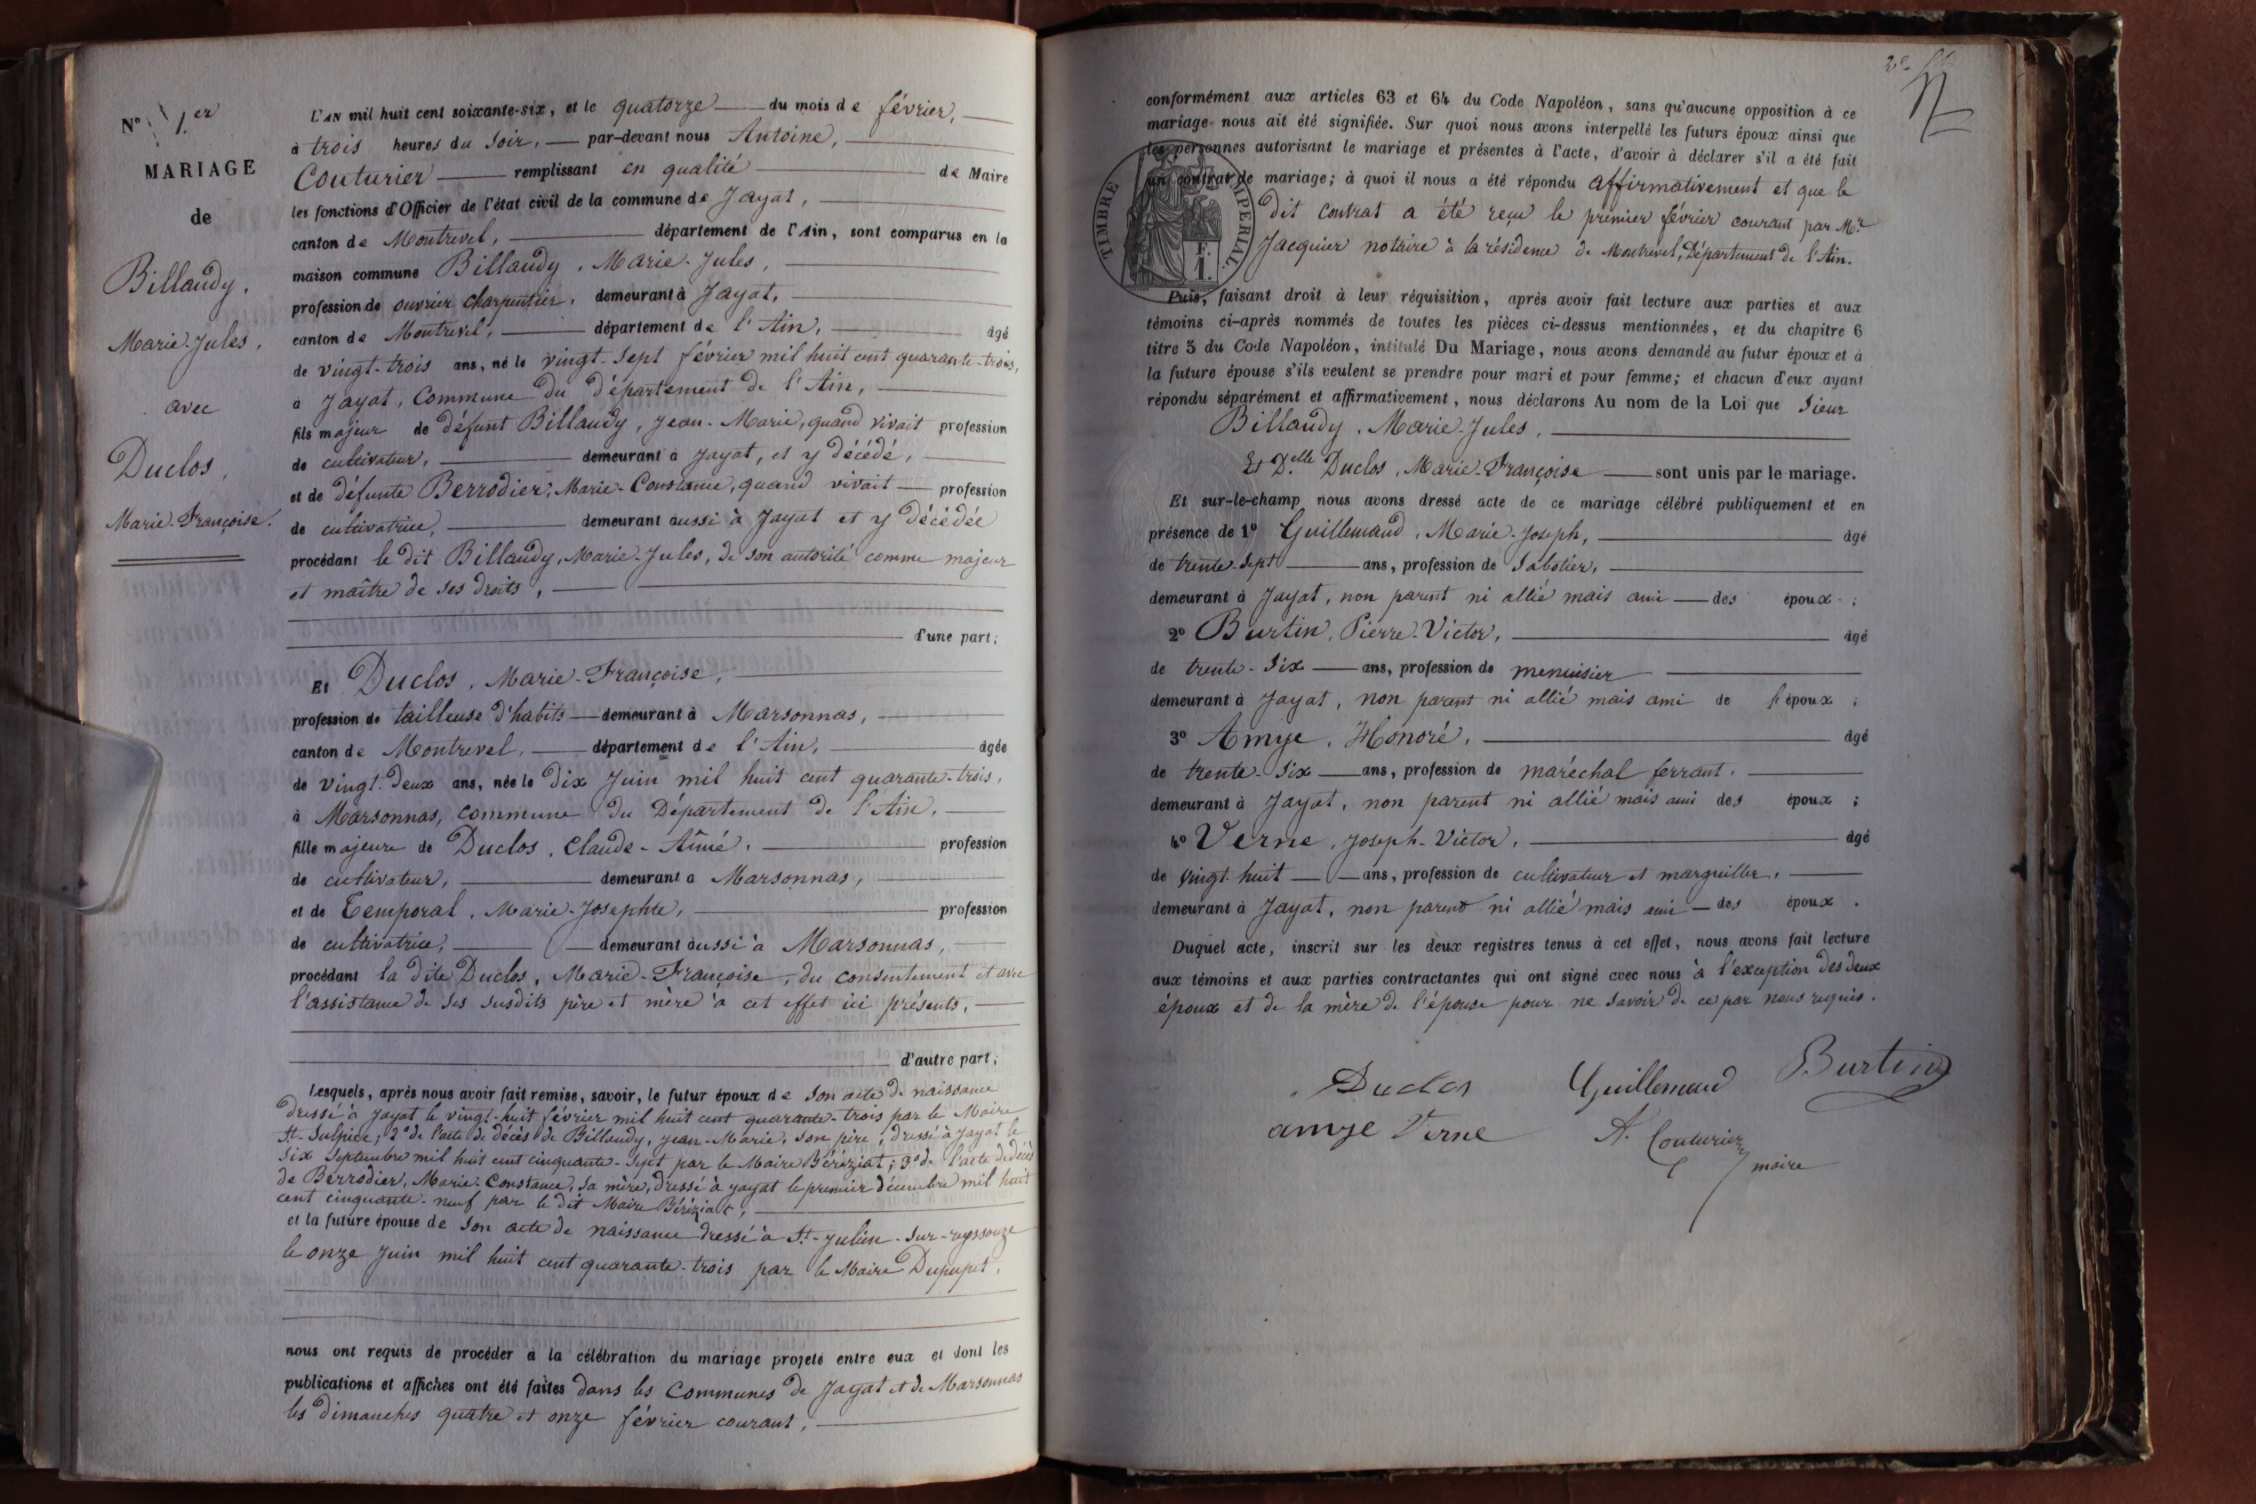 N° 1.er
MARIAGE
de
Billaudy,
Marie-Jules,
avec
Duclos,
Marie-Françoise.
L'AN mil huit cent soixante-six, et le quatorze du mois de février,
à trois heures du soir, par-devant nous Antoine,
Couturier remplissant en qualité de Maire
les fonctions d'Officier de l'état civil de la commune de Jayat,
canton de Montrevel, département de l'Ain, sont comparus en la
maison commune Billaudy, Marie-Jules,
profession de ouvrier charpentier, demeurant à Jayat,
canton de Montrevel, département de l'Ain, âgé
de vingt-trois ans, né le vingt-sept février mil huit cent quarante-trois,
à Jayat, Commune du département de l'Ain,
fils majeur de défunt Billaudy, Jean-Marie, quand vivait profession
de cultivateur, demeurant à Jayat, et y décédé,
et de défunte Berrodier, Marie-Constance, quand vivait profession
de cultivatrice, demeurant aussi à Jayat et y décédée
procédant le dit Billaudy, Marie-Jules, de son autorité comme majeur
et maître de ses droits,
d'une part;
Et Duclos, Marie-Françoise,
profession de tailleuse d'habits demeurant à Marsonnas,
canton de Montrevel, département de l'Ain, âgée
de vingt-deux ans, née le dix Juin mil huit cent quarante-trois,
à Marsonnas, commune du Département de l'Ain,
fille majeure de Duclos, Claude-Aîmé, profession
de cultivateur, demeurant à Marsonnas,
et de Temporal, Marie-Josephte, profession
de cultivatrice, demeurant aussi à Marsonnas,
procédant la dite Duclos, Marie-Françoise, du consentement et avec
l'assistance de ses susdits père et mère à cet effet ici présents,
d'autre part;
Lesquels, après nous avoir fait remise, savoir, le futur époux de son acte de naissance
dressé à Jayat le vingt-huit février mil huit cent quarante-trois par le Maire
St-Sulpice; 2° de l'acte de décès de Billaudy, Jean-Marie, son père, dressé à Jayat le
six Septembre mil huit cent cinquante-sept par le Maire Béréziat; 3° de l'acte de décès
de Berrodier, Marie-Constance, sa mère, dressé à Jayat le premier décembre mil huit
cent cinquante-neuf par le dit Maire Béréziat;
et la future épouse de son acte de naissance dressé à St-Julien-sur-reyssouze
le onze Juin mil huit cent quarante-trois par le Maire Dupupet,
nous ont requis de procéder à la célébration du mariage projeté entre eux et dont les
publications et affiches ont été faites dans les Communes de Jayat et de Marsonnas
les dimanches quatre et onze février courant,
conformément aux articles 63 et 64 du Code Napoléon, sans qu'aucune opposition à ce
mariage nous ait été signifiée. Sur quoi nous avons interpellé les futurs époux ainsi que
les personnes autorisant le mariage et présentes à l'acte, d'avoir à déclarer s'il a été fait
un contrat de mariage; à quoi il nous a été répondu affirmativement et que le
dit contrat a été reçu le premier février courant par Mr.
Jacquier nottrire à la résidence de Montrevel, Département de l'Ain.
TIMBRE IMPERIAL
F.
1.
Puis, faisant droit à leur réquisition, après avoir fait lecture aux parties et aux
témoins ci-après nommés de toutes les pièces ci-dessus mentionnées, et du chapitre 6
titre 5 du Code Napoléon, intitulé Du Mariage, nous avons demandé au futur époux et à
la future épouse s'ils veulent se prendre pour mari et pour femme; et chacun d'eux ayant
répondu séparément et affirmativement, nous déclarons Au nom de la Loi que sieur
Billaudy, Marie-Jules,
Et D.elle Duclos, Marie-Françoise sont unis par le mariage.
Et sur-le-champ nous avons dressé acte de ce mariage célébré publiquement et en
présence de 1° Guillemaud, Marie-Joseph, âgé
de trente-sept ans, profession de Sabotier,
demeurant à Jayat, non parent ni allié mais ami des époux;
2° Burtin, Pierre-Victor, âgé
de trente-six ans, profession de menuisier
demeurant à Jayat, non parent ni allié mais ami de l'époux;
3° Amye, Honoré, âgé
de trente-six ans, profession de maréchal ferrant,
demeurant à Jayat, non parent ni allié mais ami des époux;
4° Verne, Joseph-Victor, âgé
de vingt-huit ans, profession de cultivateur et marguiller,
demeurant à Jayat, non parent ni allié mais ami des époux.
Duquel acte, inscrit sur les deux registres tenus à cet effet, nous avons fait lecture
aux témoins et aux parties contractantes qui ont signé avec nous à l'exception des deux
époux et de la mère de l'épouse pour ne savoir de ce par nous requis.
Duclos Guillemaud Burtin
amye Verne A. Couturier
maire